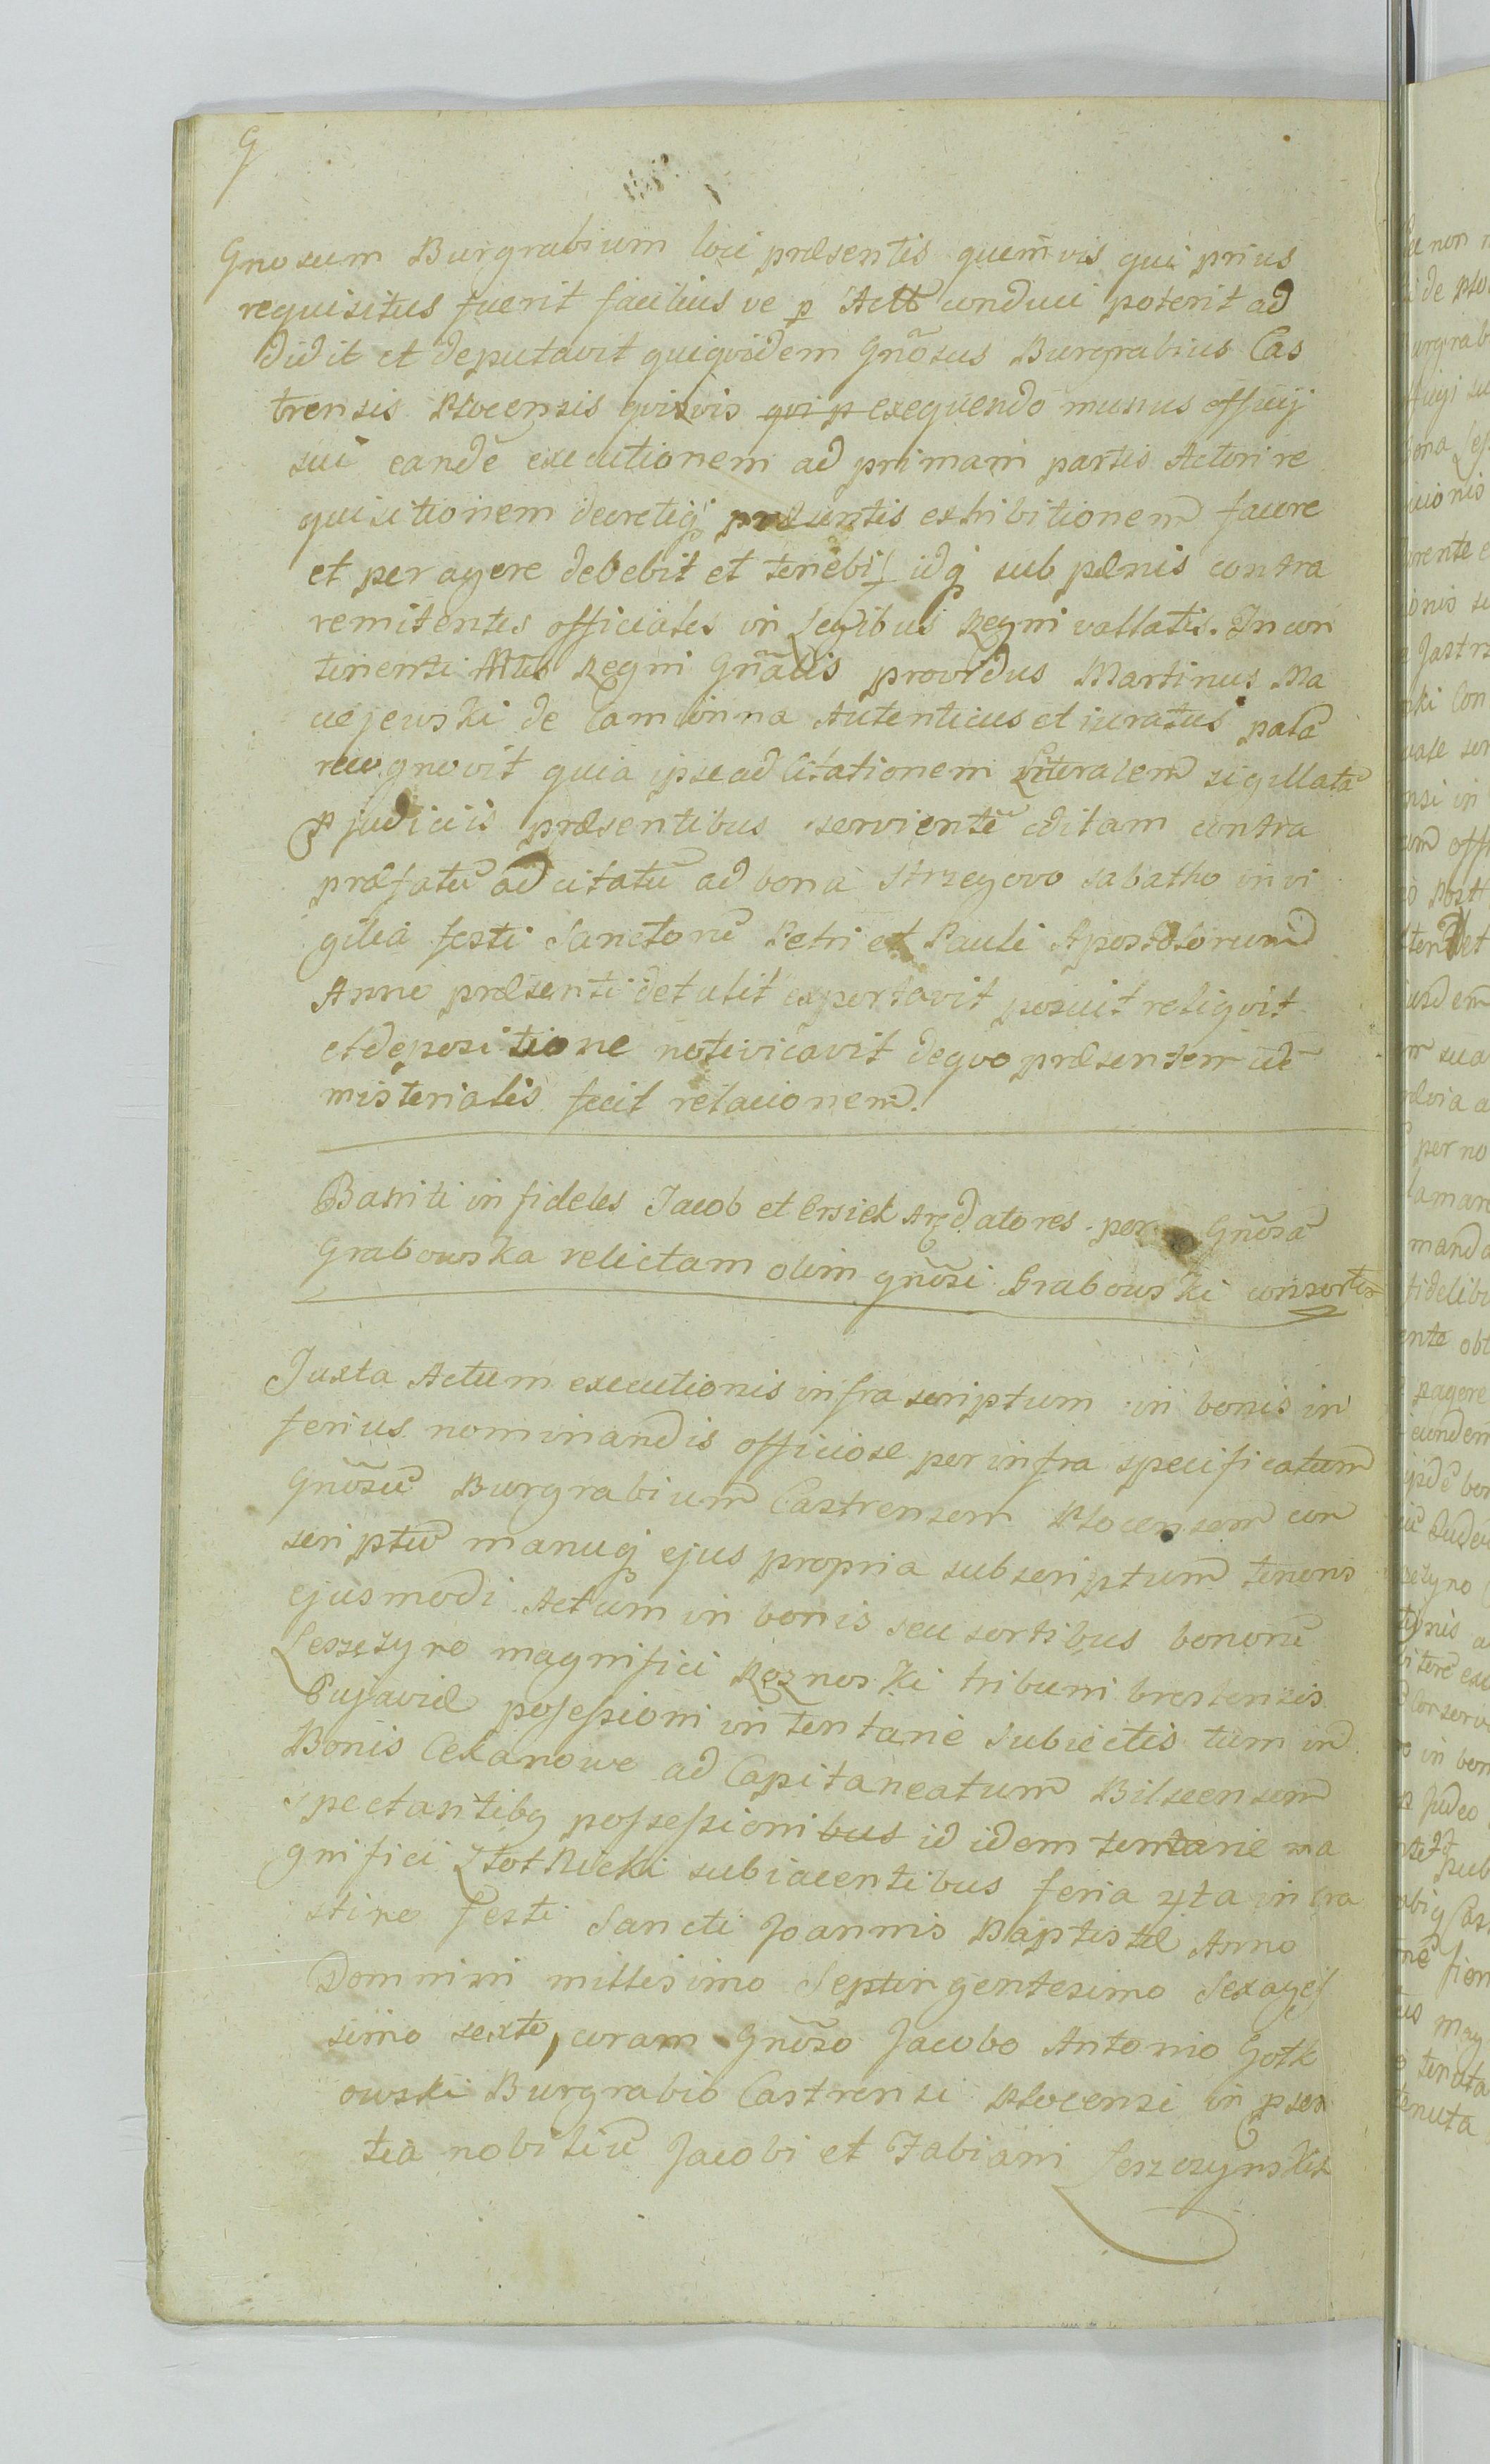 G
Gnosum Burgrabium loci præsentis quemvis qui prius
requisitus fuerit facilius ve p Actt conduci poterit ad
didit et deputavit quiqvidem Gnõsus Burgrabius Cas
trensis Plocensis qvisvis qvi p exeqvendo munus officij
sui eandẽ executionem ad primam partis Actori re
quisitionem decretiq præsentis exhibitionem facere
et peragere debebit et tenebit idq sub pænis contra
remitentes officiales in Legibus Regni vallatis. In con
tinenti Mtlis Regni Gñalis providus Martinus Ma
cejewski de Caminna Autenticus et iuratus palã
recognovit quia ipse ad Citationem Literalem sigillatã
p judiciis præsentibus servientẽ editam contra
præfatũ ad citatũ ad bona Strzegovo sabatho in vi
gilia festi Sanctorũ Petri et Pauli Apostolorum
Anno præsenti detulit exportavit posuit reliqvit
et depositione notivicavit deqvo præsentem idẽ
misterialis fecit relacionem.
Baniti in fideles Jacob et Ersiek Arędatores per Gnõsã
Grabowska relictam olim gnõsi Grabowski consortẽ
Juxta Actum executionis infra scriptum in bonis in
ferius nominandis officiose per infra specificatum
Gnõsũ Burgrabium Castrensem Plocensem con
scriptũ manuq ejus propria subscriptum tenoris
ejusmodi. Actum in bonis seu sortibus bonorũ
Leszczyno magnifici Roznoski tribuni brestensis
Cujaviæ possessioni in tentarie Subiectis tum in
Bonis Cekanowe ad Capitaneatum Bilscensem
spectantibq possessionibus id idem tentarie ma
gnifici Złotnicki subiacentibus feria 4ta in cra
stino festi Sancti Joannis Baptistæ Anno
Domnini millesimo Septingentesimo Sexages
simo sexto, coram Gnõso Jacobo Antonio Gotk
owski Burgrabio Castrensi Plocensi in præsen
tia nobiliũ Jacobi et Fabiani Leszczynskich